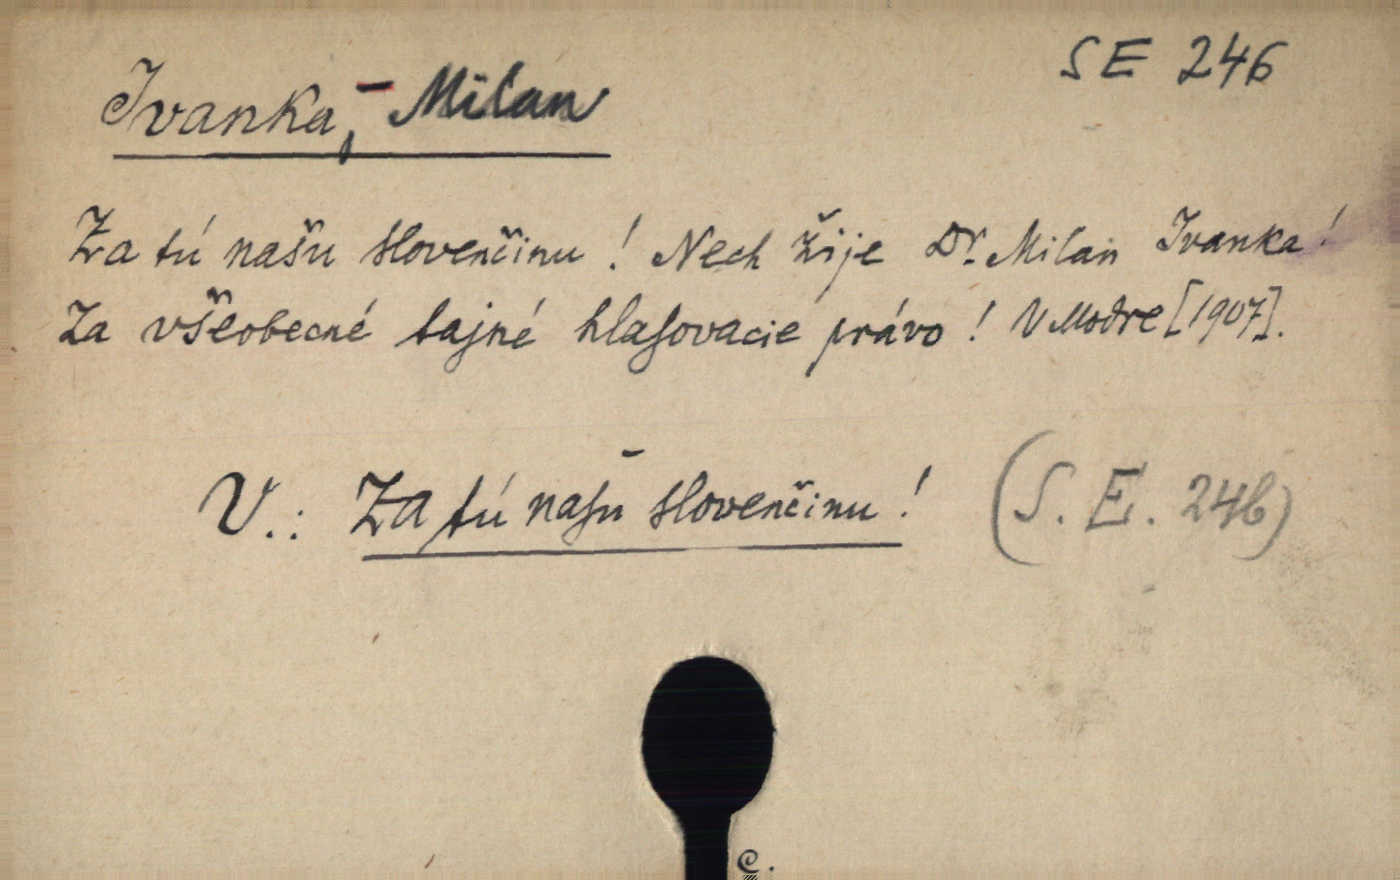 SE 246
Ivanka, - Milan
Za tú našu slovenčinu! Nech žije Dr. Milan Ivanka!
Za všeobecné tajné hlasovacie právo! V Modre [1907].
V.: Za tú našu slovenčinu! (S. E. 246)
C.